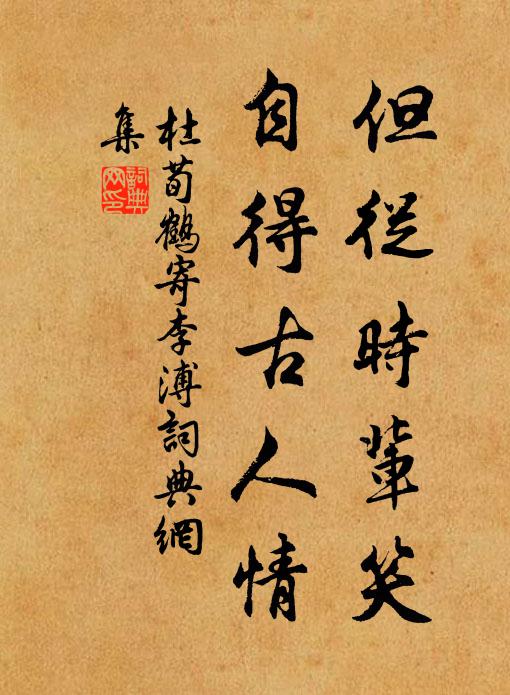 但從時輩笑
自得古人情
杜荀鶴寄李溥詞典網
集
詞典網印